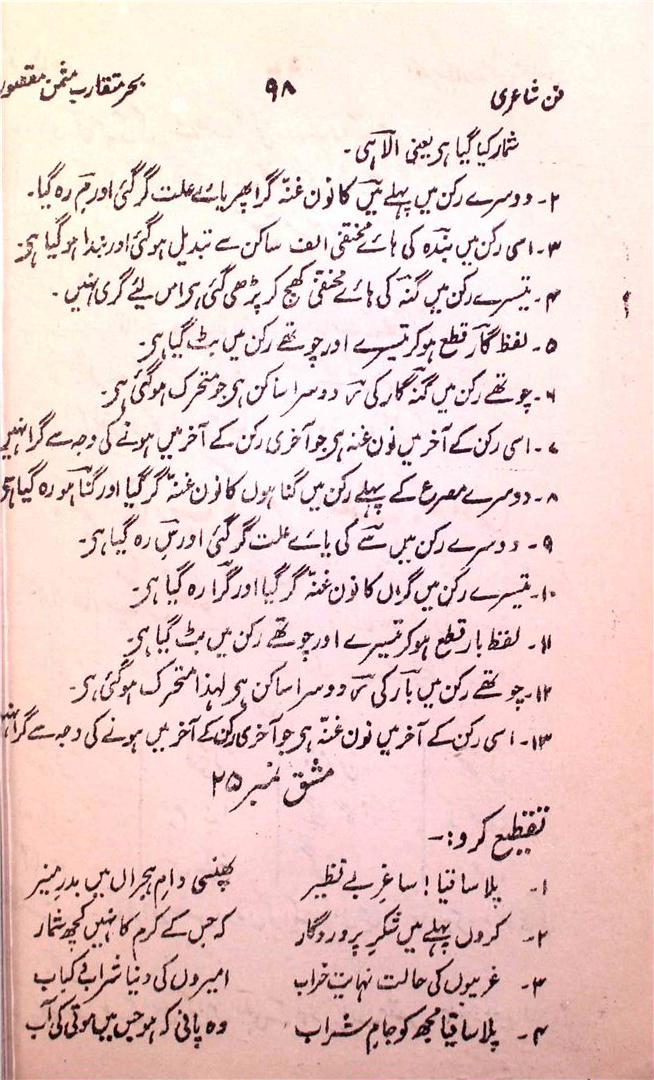 فن شاعری ۹۸ بحر متقارب مثمن مقصور
شمار کیا گیا ہی یعنی الاہی۔
۲۔ دوسرے رکن میں پہلے میں کا نون غنہ گرا پھر یائے علت گر گئی اور م رہ گیا۔
۳۔ اسی رکن میں بندہ کی ہائے مختفی الف ساکن سے تبدیل ہو گئی اور بندا ہو گیا ہی۔
۴۔ تیسرے رکن میں گنہ کی ہائے مختفی کھچ کر پڑھی گئی ہی اس لیئے گری نہیں۔
۵۔ لفظ گار قطع ہو کر تیسرے اور چوتھے رکن میں بٹ گیا ہی۔
۶۔ چوتھے رکن میں گنہ گار کی ر دوسرا ساکن ہی جو متحرک ہو گئی ہی۔
۷۔ اسی رکن کے آخر میں نون غنہ ہی جو آخری رکن کے آخر میں ہونے کی وجہ سے گرا نہیں
۸۔ دوسرے مصرع کے پہلے رکن میں گناہوں کا نون غنہ گر گیا اور گناہو رہ گیا ہی
۹۔ دوسرے رکن میں سے کی یائے علت گر گئی اور س رہ گیا ہی۔
۱۰۔ تیسرے رکن میں گراں کا نون غنہ گر گیا اور گرا رہ گیا ہی۔
۱۱۔ لفظ بار قطع ہو کر تیسرے اور چوتھے رکن میں بٹ گیا ہی۔
۱۲۔ چوتھے رکن میں بار کی ر دوسرا ساکن ہی لہذا متحرک ہو گئی ہی۔
۱۳۔ اسی رکن کے آخر میں نون غنہ ہی جو آخری رکن کے آخر میں ہونے کی وجہ سے گرا نہیں
مشق نمبر ۲۵
تقطیع کرو:۔
۱۔ پلا ساقیا! ساغرِ بے نظیر پھنسی دامِ ہجراں میں بدرِ منیر
۲۔ کروں پہلے میں شکرِ پروردگار کہ جس کے کرم کا نہیں کچھ شمار
۳۔ غریبوں کی حالت نہایت خراب امیروں کی دنیا شراب و کباب
۴۔ پلا ساقیا مجھ کو جامِ شراب وہ پانی کہ ہو جس میں موتی کی آب